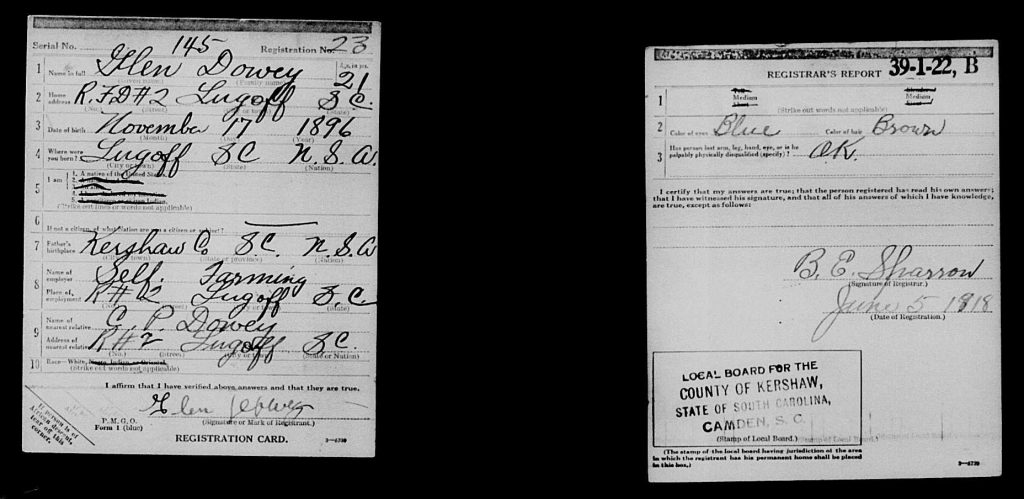 Serial No. 145 Registration No. 23
1 Name in full Glen Dowey Age, in yrs. 21
(Given name) (Family name)
2 Home address R.F.D#2 Lugoff S C.
(No.) (Street) (State)
3 Date of birth November 17 1896
(Month) (Day) (Year)
4 Where were you born? Lugoff S C U. S. A.
(City or town) (State) (Nation)
5 I am 1. A native of the United States
(Strike out lines or words not applicable)
6 If not a citizen, of what Nation are you a citizen or subject?
7 Father's birthplace Kershaw Co S C. U. S. A
(City or town) (State or province) (Nation)
8 Name of employer Self. Farming
Place of employment R#2 Lugoff S. C
(No.) (State)
9 Name of nearest relative C. P. Dowey
Address of nearest relative R#2 Lugoff S C.
(No.) (Street) (City or town) (State or Nation)
10 Race—White, Negro, Indian, or Oriental
(Strike out words not applicable)
I affirm that I have verified above answers and that they are true.
Glen
P. M. G. O.
Form 1 (blue)
(Signature or Mark of Registrant.)
REGISTRATION CARD.
If person is of African descent, tear off this corner.
REGISTRAR'S REPORT 39-1-22, B
1 Tall Medium Short Slender Medium Stout
(Strike out words not applicable)
2 Color of eyes Blue Color of hair Brown
3 Has person lost arm, leg, hand, eye, or is he palpably physically disqualified (specify)? OK.
I certify that my answers are true; that the person registered has read his own answers;
that I have witnessed his signature, and that all of his answers of which I have knowledge,
are true, except as follows:
B. E. Sparrow
(Signature of Registrar.)
June 5 1918
(Date of Registration.)
LOCAL BOARD FOR THE
COUNTY OF KERSHAW,
STATE OF SOUTH CAROLINA,
CAMDEN, S. C.
(Stamp of Local Board.)
(The stamp of the local board having jurisdiction of the area
in which the registrant has his permanent home shall be placed
in this box.)